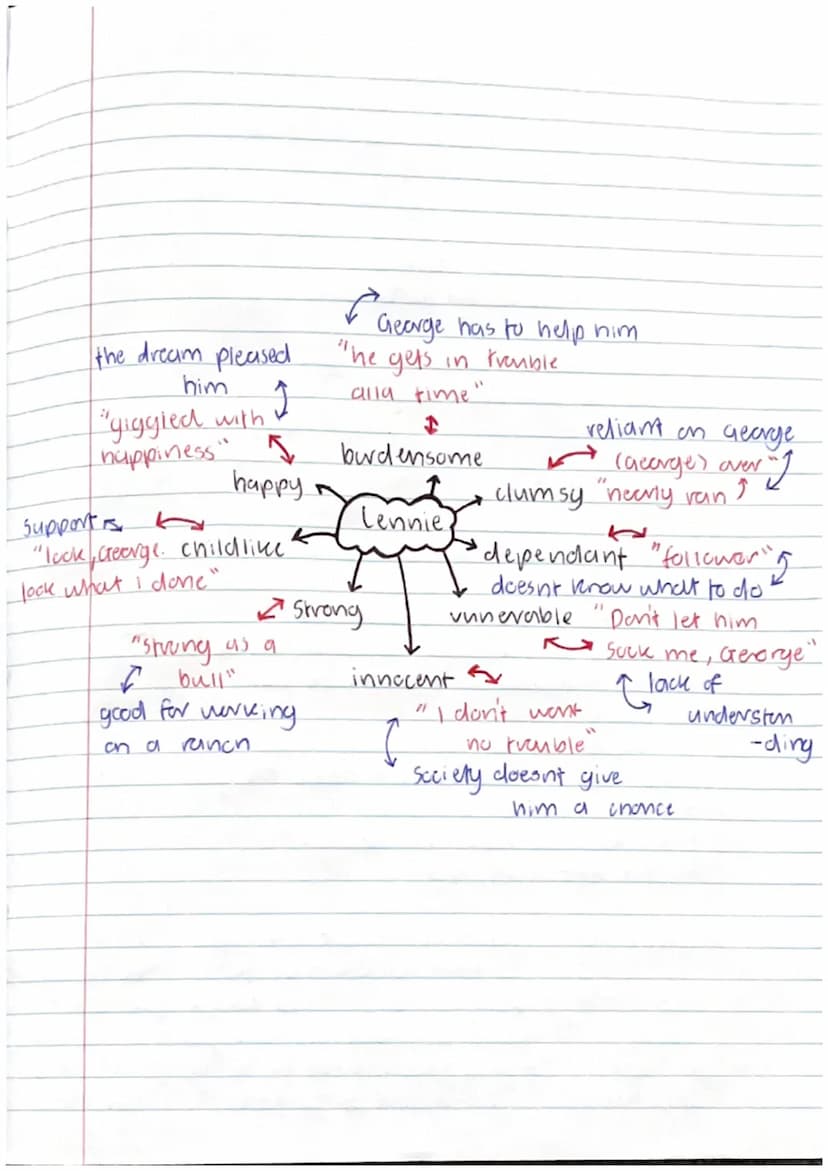 George has to help him
"he gets in trouble
alla time"
burdensome
the dream pleased
him
"giggled with
happiness"
happy
reliant on George
(George) over"
clumsy "nearly ran
Lennie
support
"look, George. childlike
look what i done"
dependant "follower"
doesnt know what to do
strong
"strong as a
bull"
good for working
on a ranch
vunerable "Don't let him
sock me, George"
lack of
understan
-ding
innocent
"I don't want
no trouble"
Society doesnt give
him a chance